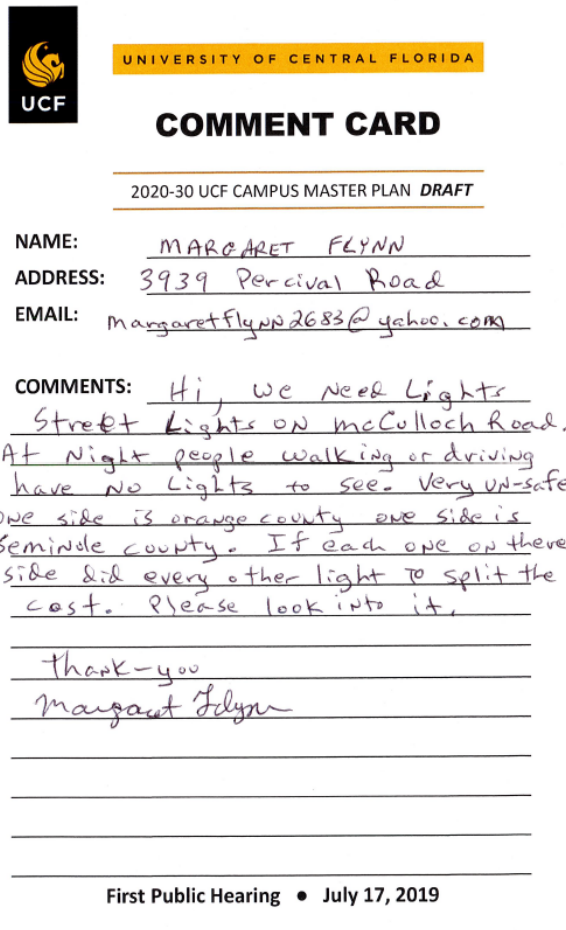 UCF
UNIVERSITY OF CENTRAL FLORIDA
COMMENT CARD
2020-30 UCF CAMPUS MASTER PLAN DRAFT
NAME: MARGARET FLYNN
ADDRESS: 3939 Percival Road
EMAIL: margaretflynn2683@yahoo.com
COMMENTS: Hi, we need Lights
Street Lights on McCulloch Road.
At Night people walking or driving
have No Lights to see. Very un-safe
one side is orange county one side is
Seminole county. If each one on there
side did every other light to split the
cost. Please look into it.
thank-you
Margaret Flynn
First Public Hearing • July 17, 2019